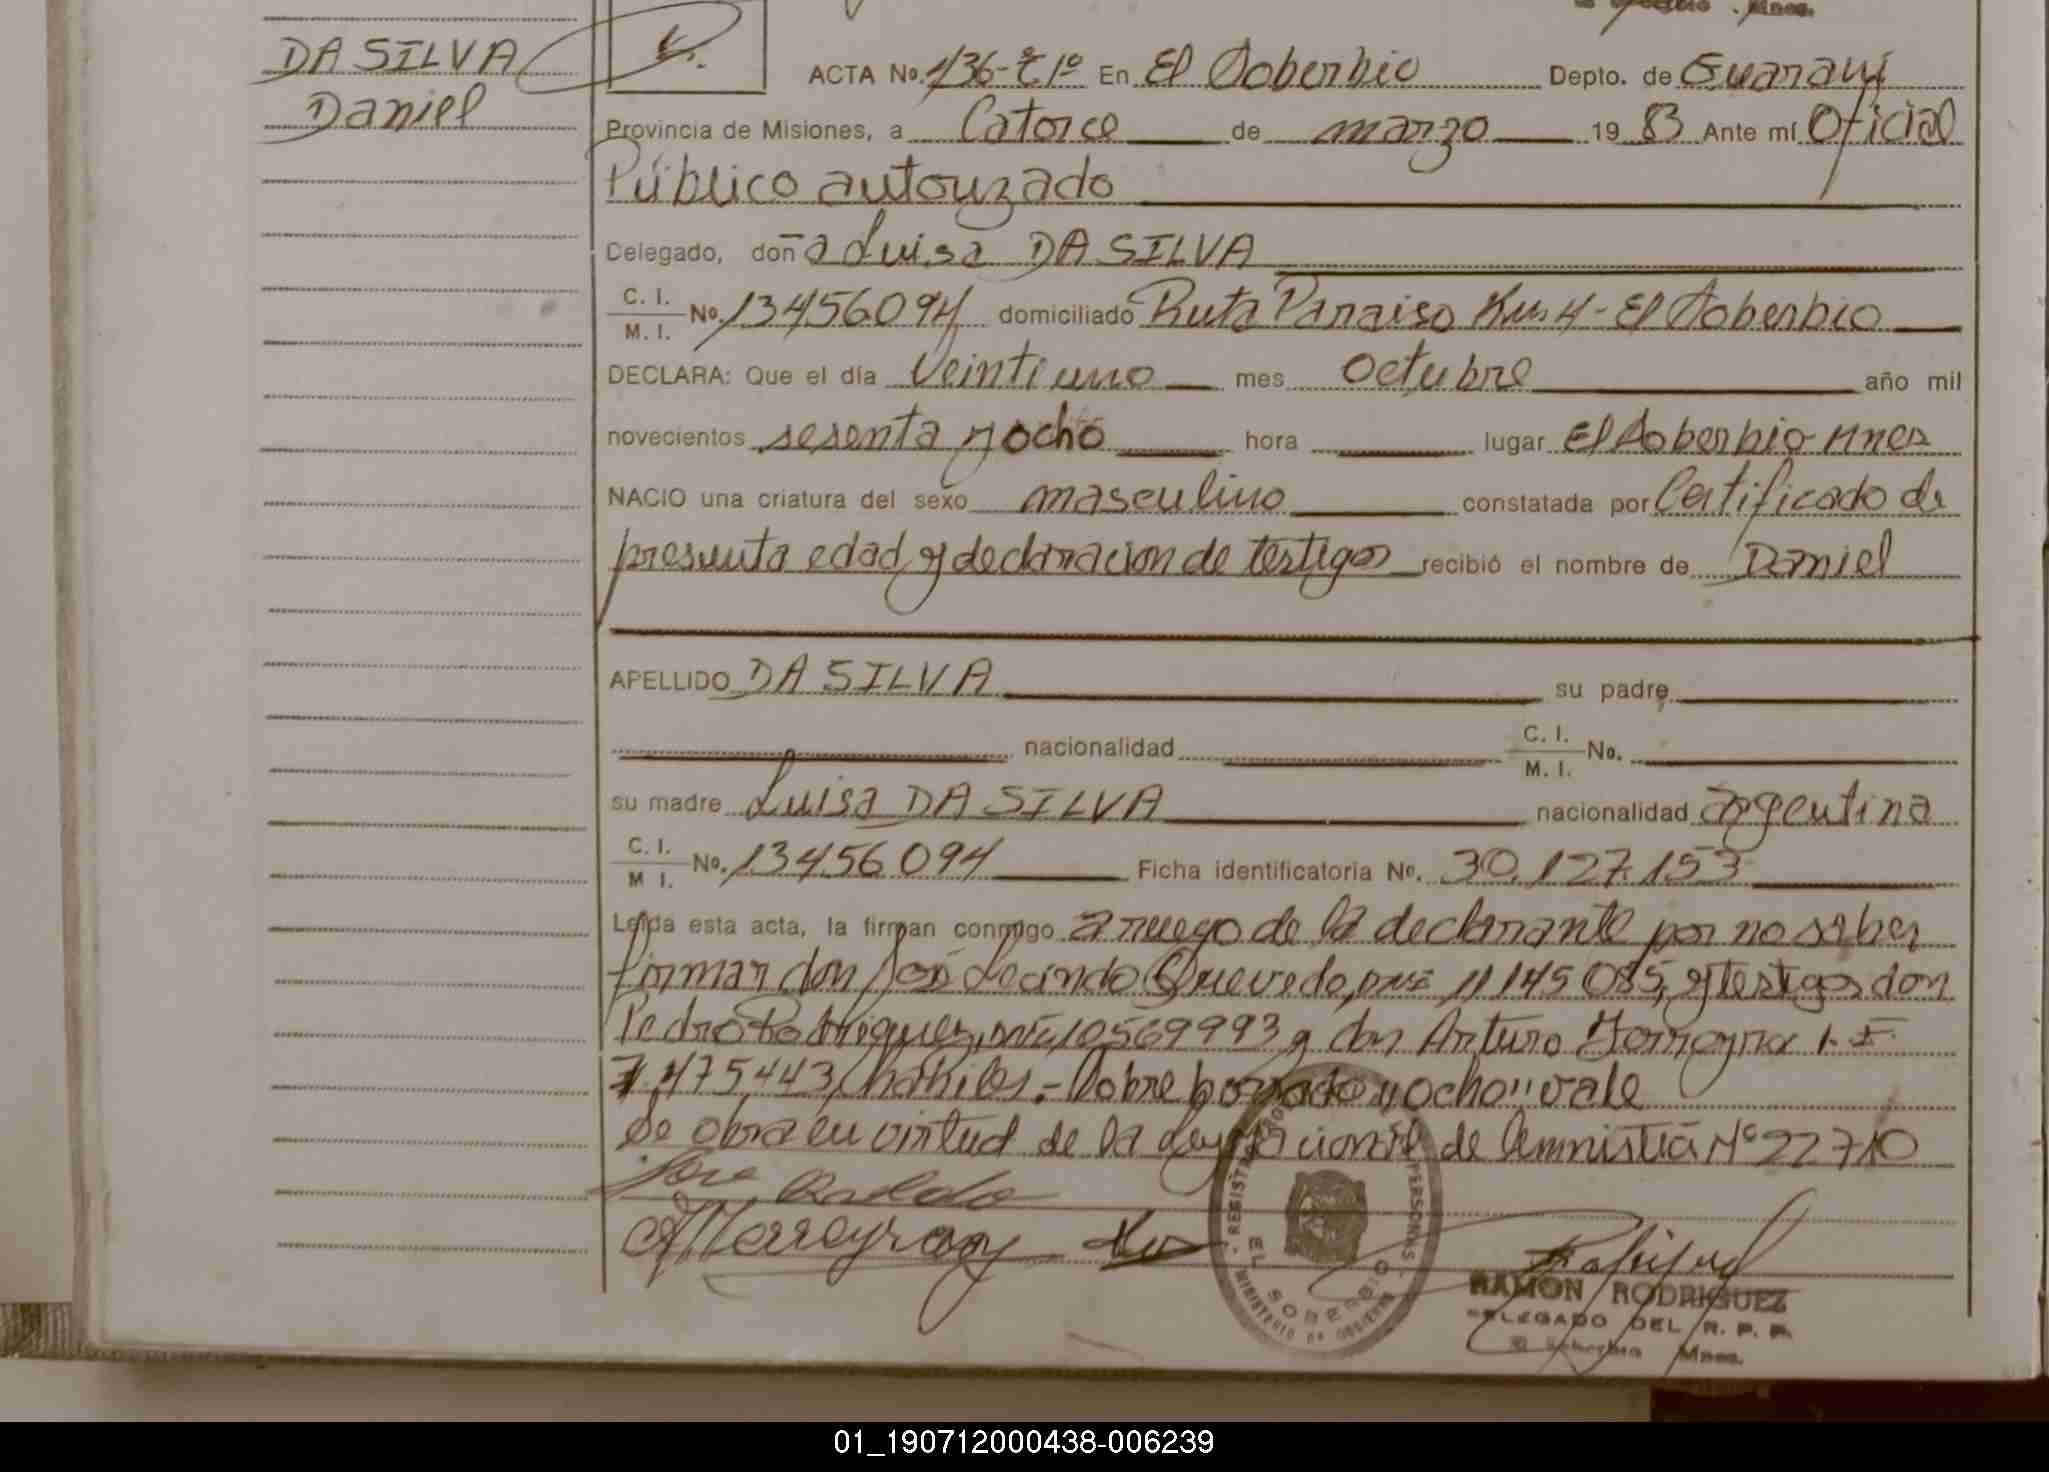 DA SILVA
Daniel
ACTA No. 136-Tº1º En El Soberbio Depto. de Guaraní
Provincia de Misiones, a Catorce de marzo 19 83 Ante mí Oficial
Público autorizado
Delegado, doña Luisa DA SILVA
C. I.
M. I. No. 13456094 domiciliado Ruta Paraiso Km 4 - El Soberbio
DECLARA: Que el día Veintiuno mes Octubre año mil
novecientos sesenta y ocho hora lugar El Soberbio Mnes
NACIO una criatura del sexo masculino constatada por Certificado de
presunta edad y declaracion de testigos recibió el nombre de Daniel
APELLIDO DA SILVA su padre
nacionalidad C. I.
M. I. No.
su madre Luisa DA SILVA nacionalidad argentina
C. I.
M I. No. 13456094 Ficha identificatoria No. 30.127.153
Leída esta acta, la firman conmigo a ruego de la declarante por no saber
firmar don José Quevedo, DNI 11145085, y testigos don
Pedro Rodriguez, DNI 10569993 y don Arturo
7.475.443, habiles.- Sobre borrado "ocho" vale
Se obra en virtud de la Ley Nacional de Amnistía Nº 22710
REGISTRO PERSONAS
EL SOBERBIO
MINISTERIO DE GOBIERNO
RAMON RODRIGUEZ
DELEGADO DEL R. P. P.
El Soberbio Mnes.
01_190712000438-006239